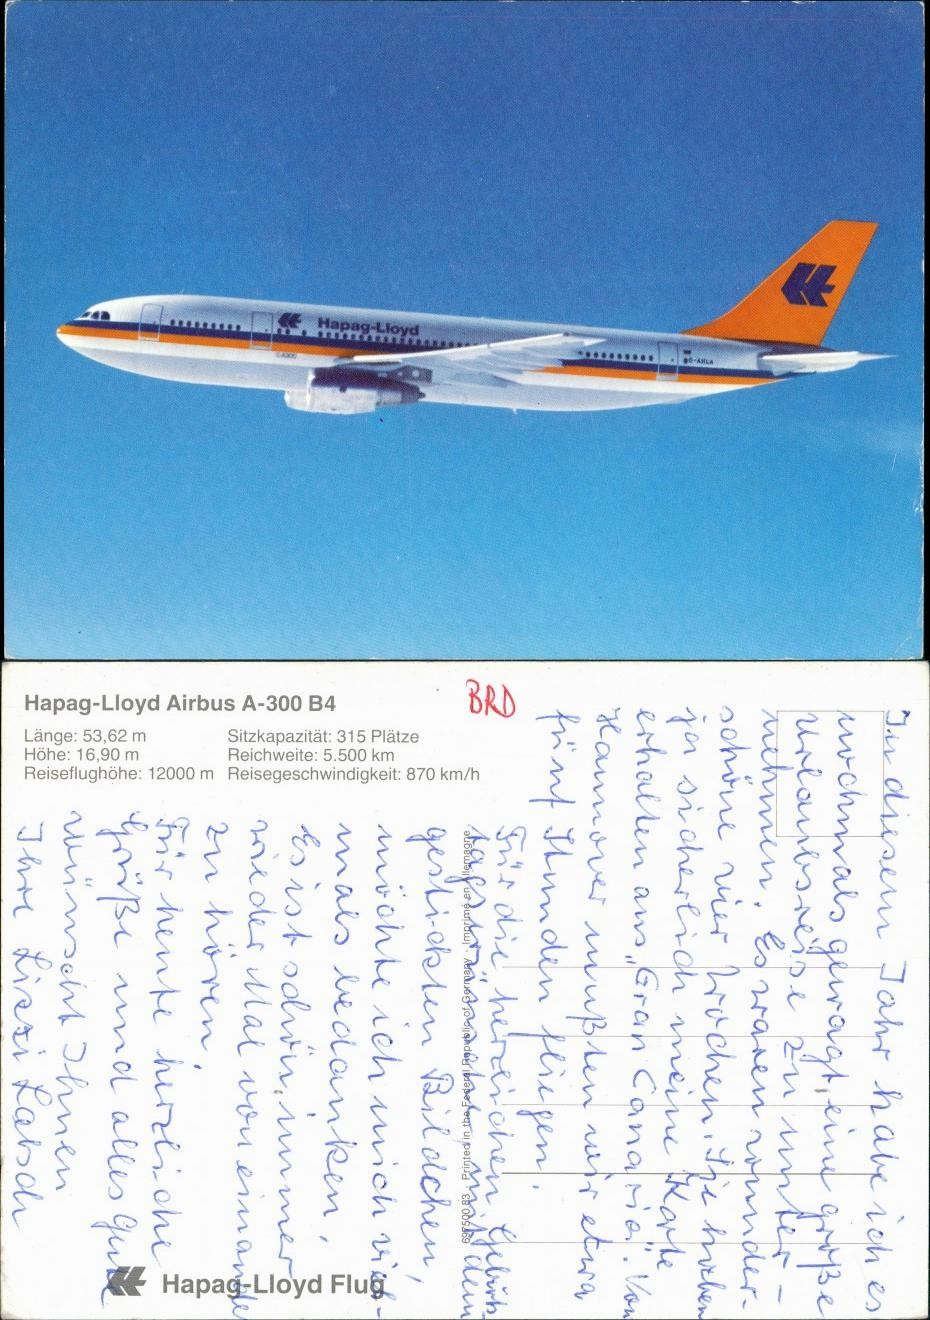 Hapag-Lloyd
D-AHLA
Hapag-Lloyd Airbus A-300 B4
BRD
Länge: 53,62 m
Höhe: 16,90 m
Reiseflughöhe: 12000 m
Sitzkapazität: 315 Plätze
Reichweite: 5.500 km
Reisegeschwindigkeit: 870 km/h
In diesem Jahr habe ich es
nochmals gewagt, eine große
Urlaubsreise zu unter-
nehmen. Es waren wunder-
schöne vier Wochen. Sie haben
ja sicherlich meine Karte
erhalten aus „Gran Canaria“. Von
Hannover mußten wir etwa
fünf Stunden fliegen.
Für die herzlichen Geburts-
tagswünsche mit dem
gestickten Bildchen,
möchte ich mich viel-
mals bedanken.
Es ist schön, immer
wieder Mal von einander
zu hören.
Für heute herzliche
Grüße und alles Gute
wünscht Ihnen
Ihre
697 500 83 · Printed in the Federal Republic of Germany · Imprimé en Allemagne
Hapag-Lloyd Flug